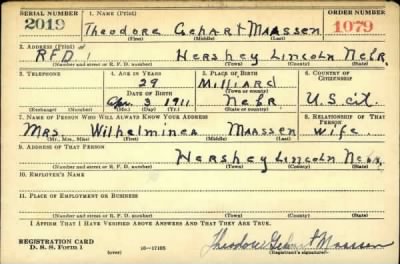 SERIAL NUMBER 1. NAME (Print) ORDER NUMBER
2019 Theodore Gehart Maassen 1079
(First) (Middle) (Last)
2. ADDRESS (Print)
RFD 1 Hershey Lincoln Nebr.
(Number and street or R. F. D. number) (Town) (County) (State)
3. TELEPHONE 4. AGE IN YEARS 5. PLACE OF BIRTH 6. COUNTRY OF CITIZENSHIP
29 Millard
DATE OF BIRTH (Town or county)
Apr. 3 1911 Nebr U.S. cit.
(Exchange) (Number) (Mo.) (Day) (Yr.) (State or country)
7. NAME OF PERSON WHO WILL ALWAYS KNOW YOUR ADDRESS 8. RELATIONSHIP OF THAT PERSON
Mrs. Wilhelminea Maassen wife
(Mr., Mrs., Miss) (First) (Middle) (Last)
9. ADDRESS OF THAT PERSON
Hershey Lincoln Nebr.
(Number and street or R. F. D. number) (Town) (County) (State)
10. EMPLOYER'S NAME
11. PLACE OF EMPLOYMENT OR BUSINESS
(Number and street or R. F. D. number) (Town) (County) (State)
I AFFIRM THAT I HAVE VERIFIED ABOVE ANSWERS AND THAT THEY ARE TRUE.
REGISTRATION CARD
D. S. S. Form 1 (over) 16—17105 Theodore Gehart Maassen
(Registrant's signature)